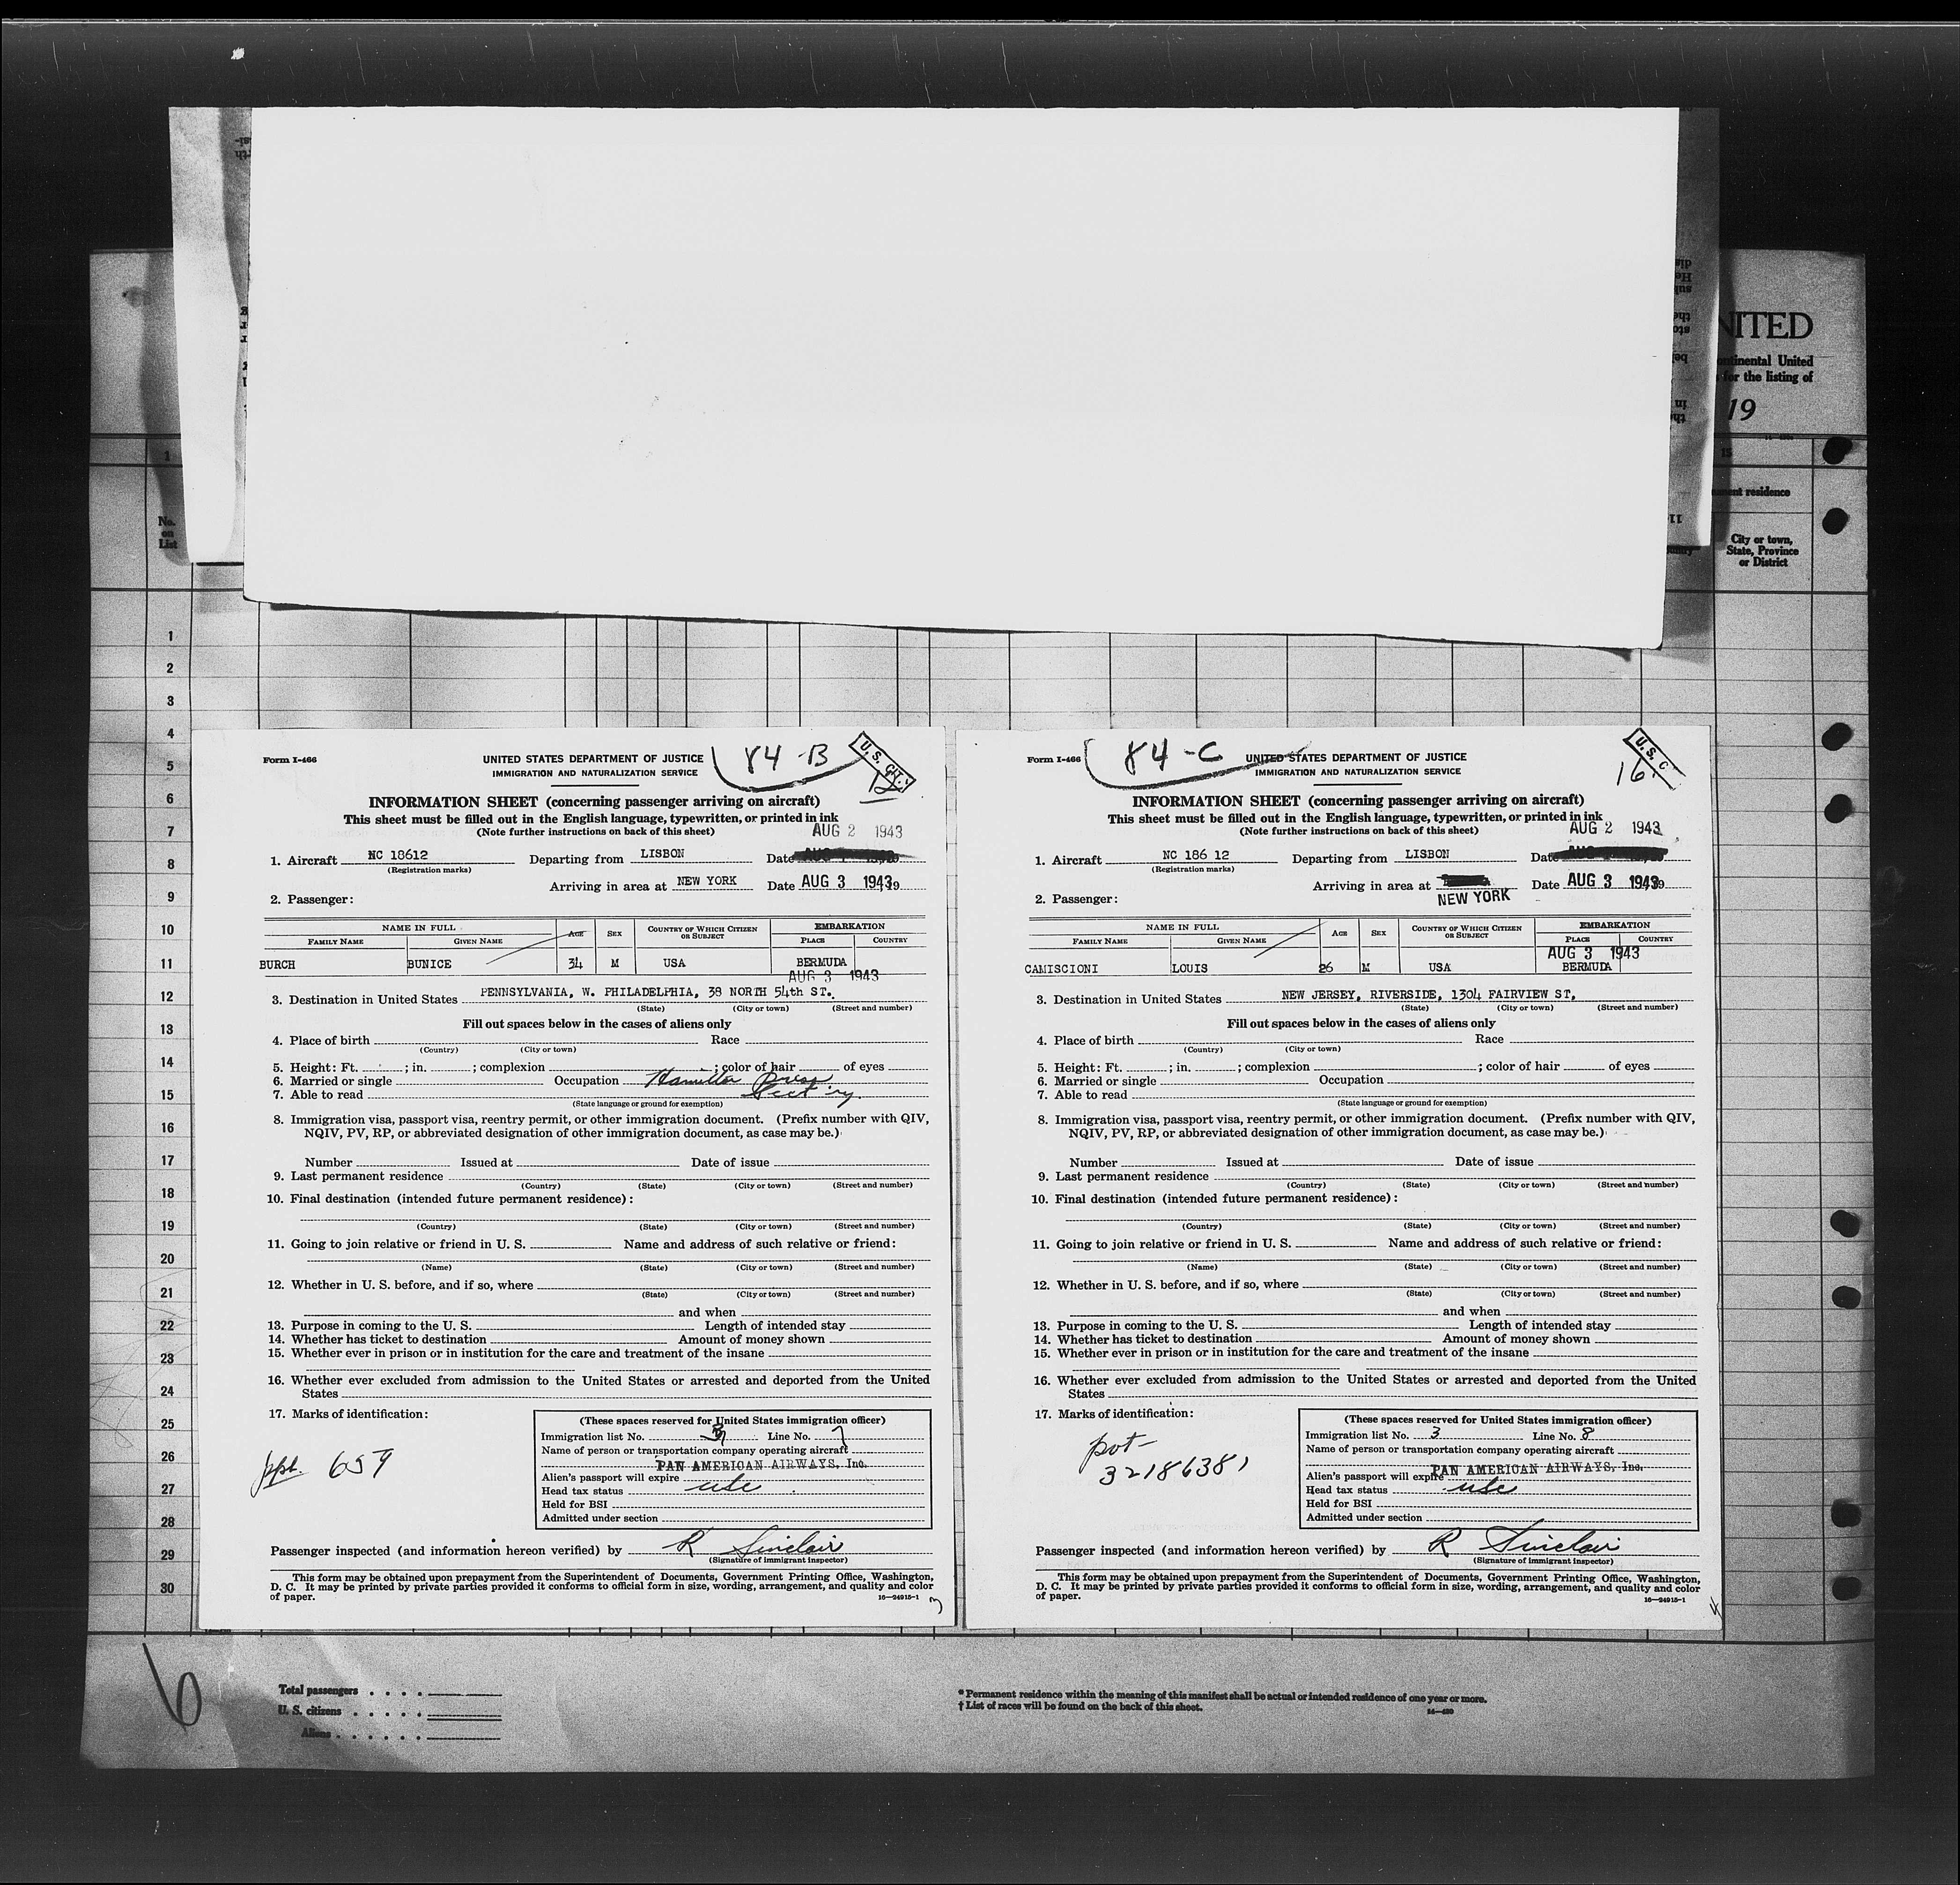 NITED
ontinental United
for the listing of
19
1
15
No.
on
List
residence
City or town,
State, Province
or District
1
2
3
4
5
6
7
8
9
10
11
12
13
14
15
16
17
18
19
20
21
22
23
24
25
26
27
28
29
30
Form I-466
84-B
U. S. CIT.
12
UNITED STATES DEPARTMENT OF JUSTICE
IMMIGRATION AND NATURALIZATION SERVICE
INFORMATION SHEET (concerning passenger arriving on aircraft)
This sheet must be filled out in the English language, typewritten, or printed in ink
(Note further instructions on back of this sheet)
AUG 2 1943
1. Aircraft NC 18612 Departing from LISBON Date
(Registration marks)
Arriving in area at NEW YORK Date AUG 3 1943 19
2. Passenger:
NAME IN FULL
FAMILY NAME GIVEN NAME AGE SEX COUNTRY OF WHICH CITIZEN OR SUBJECT EMBARKATION
PLACE COUNTRY
BURCH BUNICE 34 M USA BERMUDA
AUG 3 1943
3. Destination in United States PENNSYLVANIA, W. PHILADELPHIA, 38 NORTH 54th ST.
(State) (City or town) (Street and number)
Fill out spaces below in the cases of aliens only
4. Place of birth Race
(Country) (City or town)
5. Height: Ft. ; in. ; complexion ; color of hair of eyes
6. Married or single Occupation Hamilton Press
7. Able to read
(State language or ground for exemption)
8. Immigration visa, passport visa, reentry permit, or other immigration document. (Prefix number with QIV,
NQIV, PV, RP, or abbreviated designation of other immigration document, as case may be.)
Number Issued at Date of issue
9. Last permanent residence
(Country) (State) (City or town) (Street and number)
10. Final destination (intended future permanent residence):
(Country) (State) (City or town) (Street and number)
11. Going to join relative or friend in U. S. Name and address of such relative or friend:
(Name) (State) (City or town) (Street and number)
12. Whether in U. S. before, and if so, where
(State) (City or town) (Street and number)
and when
13. Purpose in coming to the U. S. Length of intended stay
14. Whether has ticket to destination Amount of money shown
15. Whether ever in prison or in institution for the care and treatment of the insane
16. Whether ever excluded from admission to the United States or arrested and deported from the United
States
17. Marks of identification:
ppt. 659
(These spaces reserved for United States immigration officer)
Immigration list No. 3 Line No. 7
Name of person or transportation company operating aircraft
PAN AMERICAN AIRWAYS, Inc.
Alien's passport will expire
Head tax status usc
Held for BSI
Admitted under section
Passenger inspected (and information hereon verified) by R Sinclair
(Signature of immigrant inspector)
This form may be obtained upon prepayment from the Superintendent of Documents, Government Printing Office, Washington,
D. C. It may be printed by private parties provided it conforms to official form in size, wording, arrangement, and quality and color
of paper.
16—24915-1
3
Form I-466
84-C
U. S. C.
16
UNITED STATES DEPARTMENT OF JUSTICE
IMMIGRATION AND NATURALIZATION SERVICE
INFORMATION SHEET (concerning passenger arriving on aircraft)
This sheet must be filled out in the English language, typewritten, or printed in ink
(Note further instructions on back of this sheet)
AUG 2 1943
1. Aircraft NC 186 12 Departing from LISBON Date
(Registration marks)
Arriving in area at Date AUG 3 1943 19
NEW YORK
2. Passenger:
NAME IN FULL
FAMILY NAME GIVEN NAME AGE SEX COUNTRY OF WHICH CITIZEN OR SUBJECT EMBARKATION
PLACE COUNTRY
AUG 3 1943
CAMISCIONI LOUIS 26 M USA BERMUDA
3. Destination in United States NEW JERSEY, RIVERSIDE, 1304 FAIRVIEW ST,
(State) (City or town) (Street and number)
Fill out spaces below in the cases of aliens only
4. Place of birth Race
(Country) (City or town)
5. Height: Ft. ; in. ; complexion ; color of hair of eyes
6. Married or single Occupation
7. Able to read
(State language or ground for exemption)
8. Immigration visa, passport visa, reentry permit, or other immigration document. (Prefix number with QIV,
NQIV, PV, RP, or abbreviated designation of other immigration document, as case may be.)
Number Issued at Date of issue
9. Last permanent residence
(Country) (State) (City or town) (Street and number)
10. Final destination (intended future permanent residence):
(Country) (State) (City or town) (Street and number)
11. Going to join relative or friend in U. S. Name and address of such relative or friend:
(Name) (State) (City or town) (Street and number)
12. Whether in U. S. before, and if so, where
(State) (City or town) (Street and number)
and when
13. Purpose in coming to the U. S. Length of intended stay
14. Whether has ticket to destination Amount of money shown
15. Whether ever in prison or in institution for the care and treatment of the insane
16. Whether ever excluded from admission to the United States or arrested and deported from the United
States
17. Marks of identification:
pvt-
32186381
(These spaces reserved for United States immigration officer)
Immigration list No. 3 Line No. 8
Name of person or transportation company operating aircraft
PAN AMERICAN AIRWAYS, Inc.
Alien's passport will expire
Head tax status usc
Held for BSI
Admitted under section
Passenger inspected (and information hereon verified) by R Sinclair
(Signature of immigrant inspector)
This form may be obtained upon prepayment from the Superintendent of Documents, Government Printing Office, Washington,
D. C. It may be printed by private parties provided it conforms to official form in size, wording, arrangement, and quality and color
of paper.
16—24915-1
4
6
Total passengers
U. S. citizens
Aliens
* Permanent residence within the meaning of this manifest shall be actual or intended residence of one year or more.
† List of races will be found on the back of this sheet.